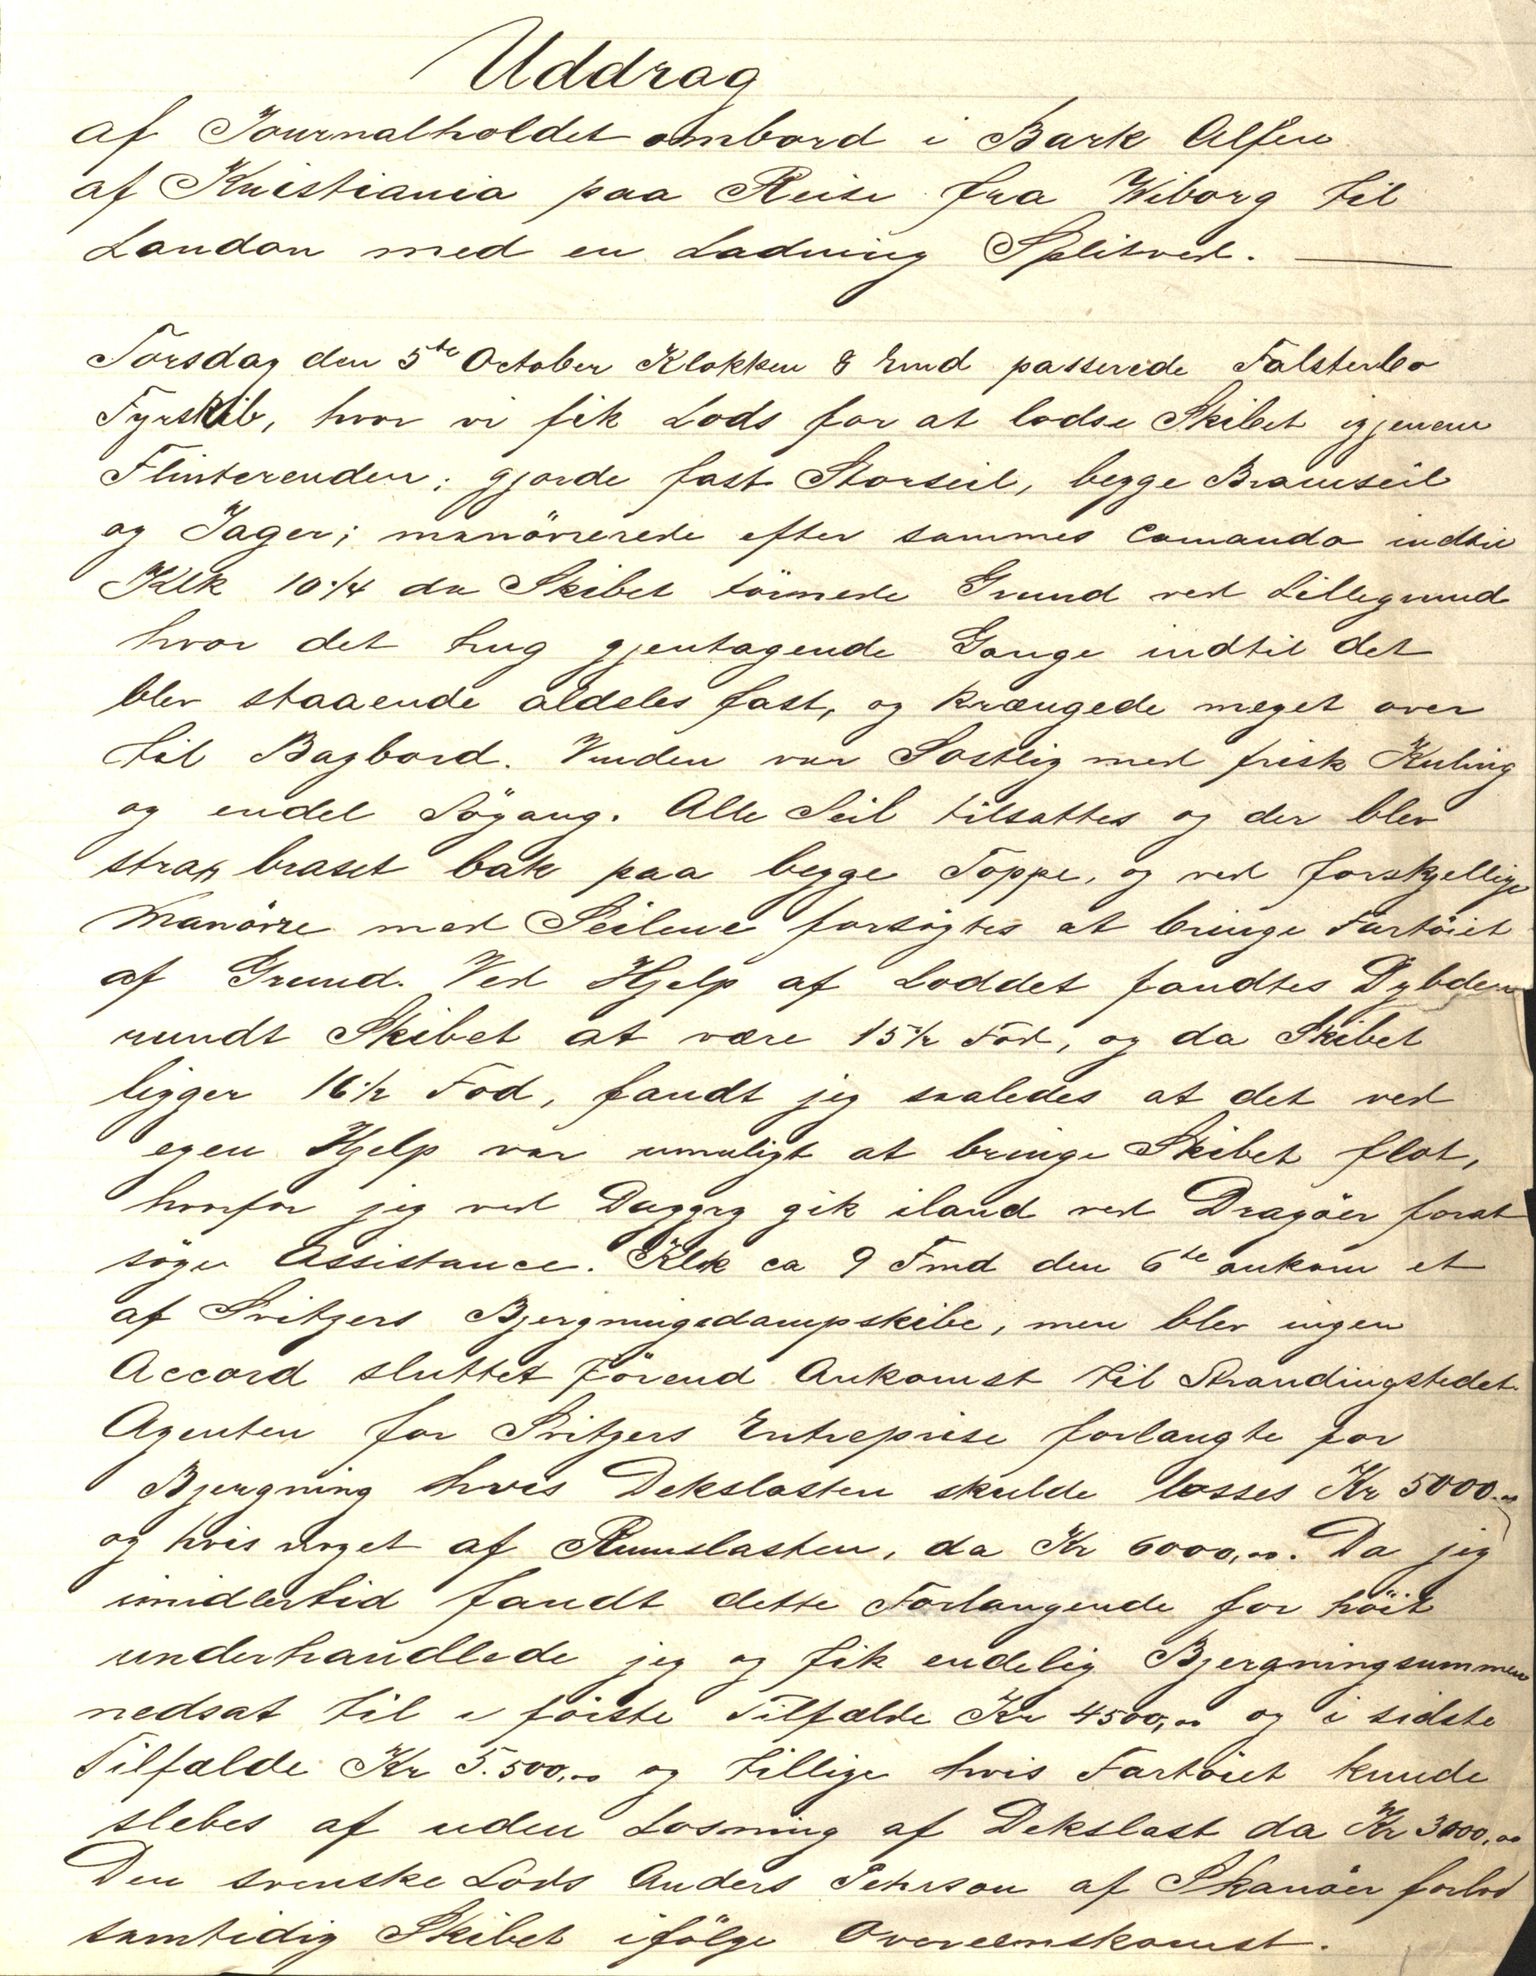 Uddrag
af Journalholdet ombord i Bark Alfen
af Kristiania paa Reise fra Wiborg til
London med en Ladning Splitved.
Torsdag den 5te October Klokken 8 Emd passerede Falsterbo
Fyrskib, hvor vi fik Lods for at lodse Skibet igjenem
Flinterenden; gjorde fast Storseil, begge Bramseil
og Jager; manövrerede efter sammes Comando indtil
Klk 10 1/4 da Skibet törnede Grund ved Lillegrund
hvor det hug gjentagende Gange indtil det
blev staaende aldeles fast, og krængede meget over
til Bagbord. Vinden var Sostlig med frisk Kuling
og endel Sögang. Alle Seil tilsattes og der blev
strax braset bak paa begge Toppe, og ved forskjellige
Manövre med Seilene forsögtes at bringe Fartöiet
af Grund. Ved Hjelp af Loddet fandtes Dybden
rundt Skibet at være 15 1/2 Fod, og da Skibet
ligger 16 1/2 Fod, fandt jeg saaledes at det ved
egen Hjelp var umuligt at bringe Skibet flot,
hvorfor jeg ved Daggry gik iland ved Dragöer forat
söge Assistance. Klk ca 9 Fmd den 6te ankom et
af Svitzers Bjergningsdampskibe, men blev ingen
Accord sluttet förend Ankomst til Strandingstedet.
Agenten for Svitzers Entreprise forlangte for
Bjergning hvis Dekslasten skulde losses Kr 5000,00
og hvis noget af Rumslasten, da Kr 6000,00. Da jeg
imidlertid fandt dette Forlangende for höit
underhandlede jeg og fik endelig Bjergningsummen
nedsat til i förste Tilfælde Kr 4500,00 og i sidste
Tilfælde Kr 5.500,00 og tillige hvis Fartöiet kunde
slebes af uden Losning af Dekslast da Kr 3000,00
Den svenske Lods Anders Pehrson af Skanöer forlod
samtidig Skibet ifölge Overeenskomst.